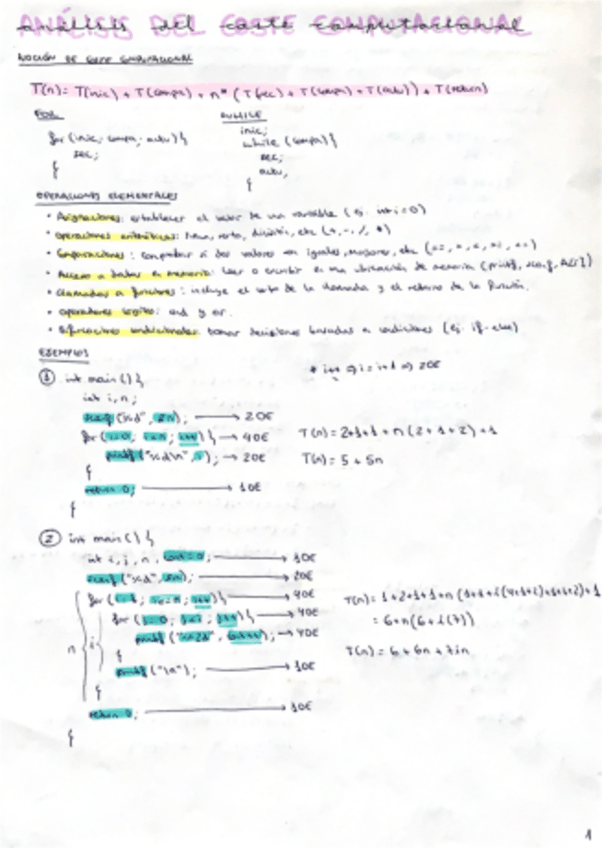 ANÁLISIS DEL COSTE COMPUTACIONAL
análisis del coste computacional
NOCIÓN DE COSTE COMPUTACIONAL
T(n) = T(inic) + T(compa) + n* (T(sec) + T(compa) + T(actu)) + T(return)
FOR WHILE
for (inic; compa; actu) {
sec;
}
inic;
while (compa) {
sec;
actu;
}
OPERACIONES ELEMENTALES
• Asignaciones: establecer el valor de una variable (ej. int i=0)
• operaciones aritméticas: suma, resta, división, etc (+, -, /, *)
• Comparaciones: comprobar si dos valores son iguales, mayores, etc
• Acceso a datos en memoria: leer o escribir en una ubicación de memoria (printf, scanf, A[i])
• Llamadas a funciones: incluye el coste de la llamada y el retorno de la función.
• operadores lógicos: and y or.
• Bifurcaciones condicionales: tomar decisiones basadas en condiciones (ej. if-else)
EJEMPLOS
* i++ ⇒ i = i+1 ⇒ 2OE
① int main() {
int i, n;
scanf("%d", &n); → 2OE
for (i=0; i<n; i++) { → 4OE
printf("%d\n", i); → 2OE
}
return 0; → 1OE
}
T(n) = 2+1+1+n(2+1+2)+1
T(n) = 5 + 5n
② int main() {
int i, j, n, cont=0; → 1OE
scanf("%d", &n); → 2OE
for (i=1; i<=n; i++) { → 4OE
for (j=0; j<i; j++) → 4OE
printf("%2d", cont++); → 4OE
}
printf("\n"); → 1OE
}
return 0; → 1OE
}
n i
T(n) = 1+2+1+1+n(1+1+i(4+1+2)+1+1+2)+1
= 6+n(6+i(7))
T(n) = 6 + 6n + 7in
1